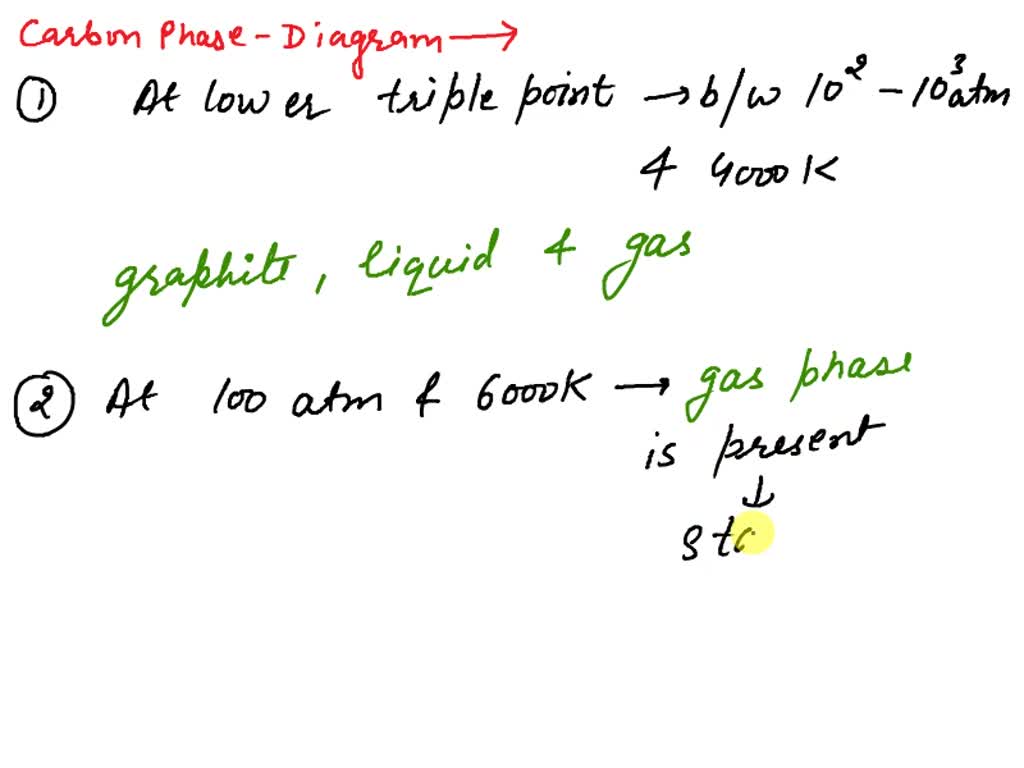 Carbon Phase-Diagram →
① At lower triple point → b/w 10² - 10³ atm
& 4000K
graphite, liquid & gas
② At 100 atm & 6000K → gas phase
is present
↓
sta